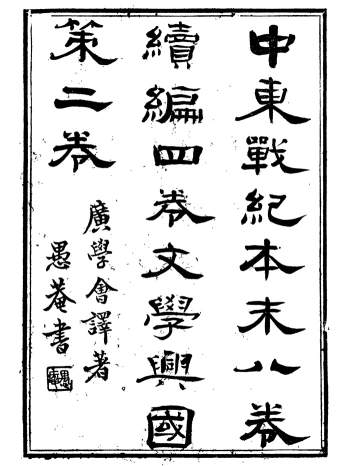 中東戰紀本末八卷
續編四卷文學興國
第二卷
廣學會譯著
愚菴書